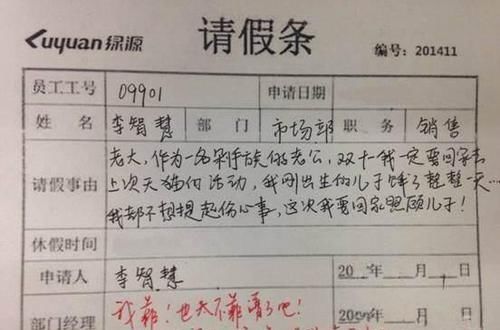 Luyuan 绿源
请假条
编号: 201411
员工工号 09901 申请日期
姓 名 李智慧 部 门 市场部 职 务 销售
老大,作为一名剁手族的老公,双十一我一定要回家
上次天猫何活动,我刚出生的儿子饿了整整一天……
请假事由
我都不想提起伤心事,这次我要回家照顾儿子!
休假时间
申请人 李智慧 20 年 月 日
部门经理 我靠!也太不靠谱了吧! 200 年 月 日